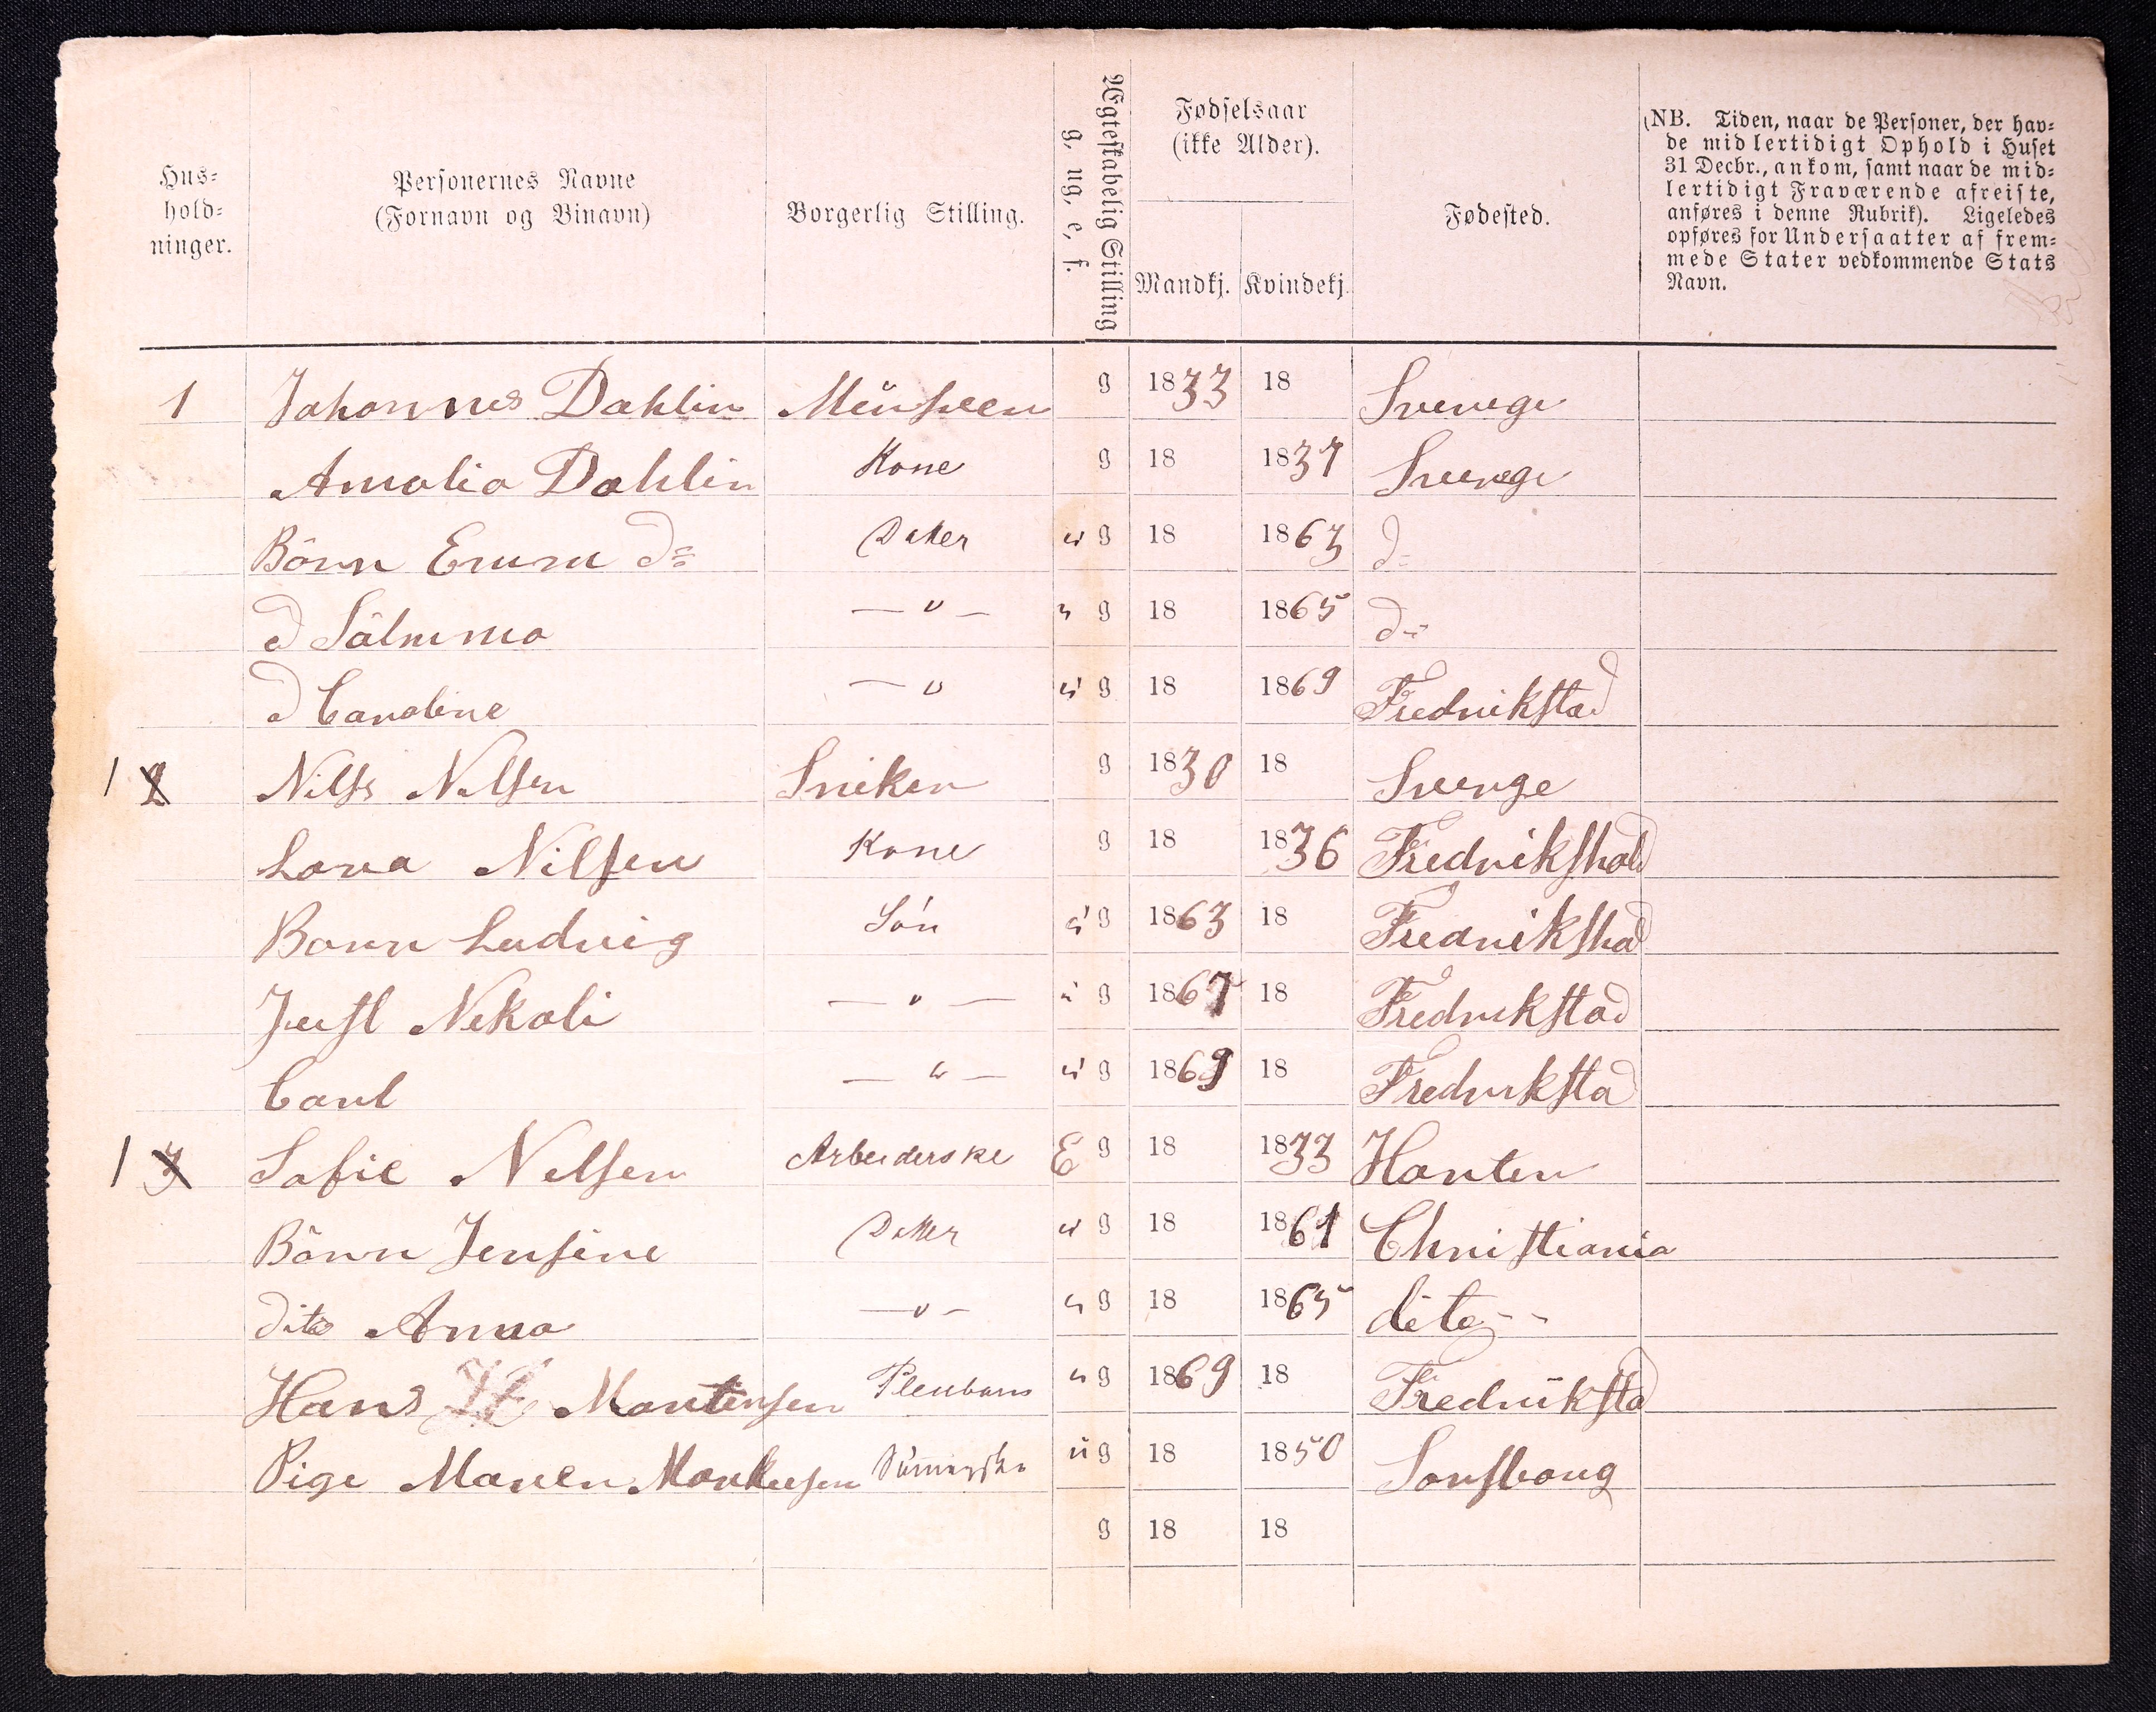 Hus-
hold-
ninger.
Personernes Navne
(Fornavn og Binavn)
Borgerlig Stilling.
Ægteskabelig Stilling
g, ug, e, f.
Fødselsaar
(ikke Alder).
Mandkj. Kvindekj.
Fødested.
(NB. Tiden, naar de Personer, der hav-
de midlertidigt Ophold i Huset
31 Decbr., ankom, samt naar de mid-
lertidigt Fraværende afreiste,
anføres i denne Rubrik). Ligeledes
opføres for Undersaatter af frem-
mede Stater vedkommende Stats
Navn.
1 Johannes Dahlin g 1833 18 Sverege
Amalia Dahlin Kone g 18 1837 Sverege
Börn Emm do Datter u g 18 1863 do
d Sälmma — " — u g 18 1865 do
d Caroline — " u g 18 1869 Fredrikstad
1 2 Nilss Nilsen Sniker g 1830 18 Sverge
Lova Nilsen Kone g 18 1836 Fredrikshald
Born Ludvig Sön u g 1863 18 Fredrikshald
Just Nekoli — " — u g 1867 18 Fredrikstad
Carl — " — u g 1869 18 Fredrikstad
1 3 Sofie Nelsen Arbeiderske E g 18 1833 Horten
Börn Jensine Datter u g 18 1861 Christiania
dito Anna — " — u g 18 1865 dito
Hans Martinsen Pleiebarn u g 1869 18 Fredrikstad
Pige Maren Markusen u g 18 1850 Sarfborg
g 18 18